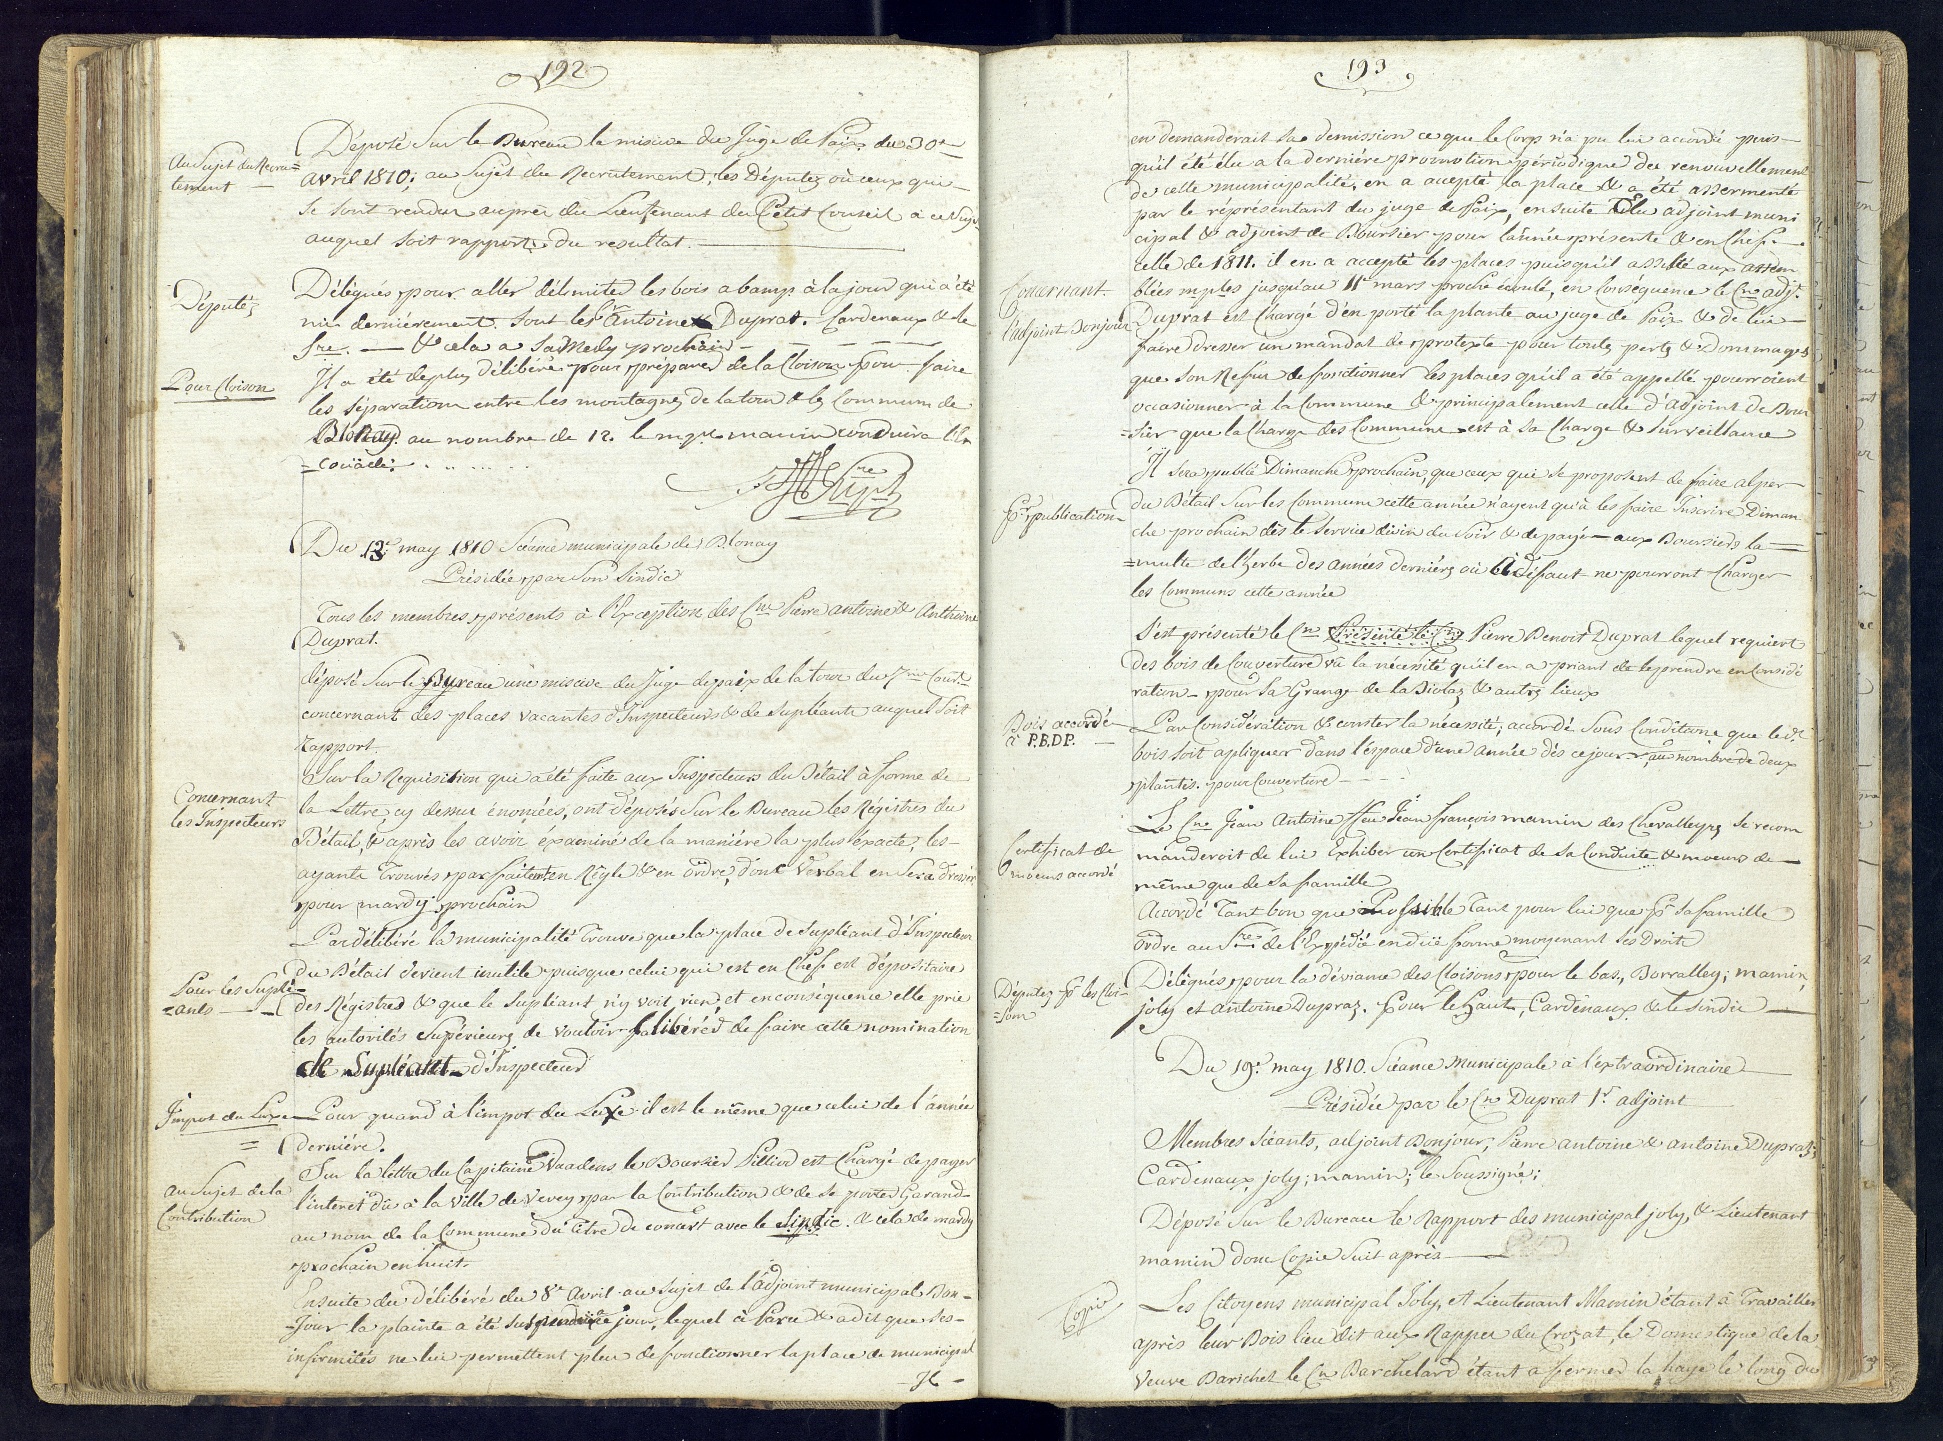 192
Déposé Sur le Bureau la missive du Juge de Paix du 30e
Au Sujet du Recru=
tement
avril 1810; au Sujet du Recrutement, les Députez où ceux qui
se sont rendus auprès du Lieutenant du Petit Conseil à ce Sujet
auquel soit rapporté du resultat.
Députéz
Délégués pour aller délimiter les bois a bamp à la jour qui a été
mis derniérement. sont les Cn Antoine Duprat. Cardenaux & le
Sre. — & cela a Samedy prochain
Pour Cloison
Il a été de plus délibéré pour préparer de la Cloison pour faire
les séparation entre les montagnes de la tour & les Commun de
Blonay. au nombre de 12. le mpl mamin conduira l'
=couäde:
Du 13e may 1810 Séance municipale de Blonay
Présidée par Son Sindic
Tous les membres présents à l'Exception des Cns Pierre antoine & Anthoine
Duprat.
déposé Sur le Bureau une missive du Juge de paix de la tour du 7me Court
concernant des places vacantes d'Inspecteurs & de Supléants auquel Soit
Rapport.
Concernant
les Inspecteurs
Sur la Requisition qui a été faite aux Inspecteurs du Bétail à forme de
la Lettre cy dessus énoncées, ont déposés Sur le Bureau les Régistres du
Bétail, & après les avoir éxaminé de la maniére la plus éxacte, les
ayants Trouvés parfaitement en Règle & en ordre, donc Verbal en Sera dressé
pour mardy prochain
Par délibéré la municipalité Trouve que la place de Supléant d'Inspecteur
Pour les Suplé=
=ants
du Bétail devient inutile puisque celui qui est en Chef est dépositaire
des Régistres & que le Supléant n'y voit rien, et en conséquence elle prie
les autorités Supérieurs de vouloir libérés de faire cette nomination
de Supléant d'Inspecteur
Impot du Luxe
Pour quand à l'impot du Luxe il est le même que celui de l'année
derniére.
Au Sujet de la
Contribution
Sur la lettre du Capitaine Vaadens le Boursier Pilliod est Chargé de payer
l'interet dù à la Ville de Vevey par la Contribution & de se porter Garand
au nom de la Commune du titre de concert avec le Sindic. & cela de mardy
prochain en huit
Ensuite du délibéré du 8e Avril au Sujet de l'adjoint municipal Bon=
=jour la plainte a été Suspendüe jour, lequel à Paru & a dit que Ses
infirmités ne lui permettent plus de fonctionner la place de municipal
Il
193
en demanderait sa demission ce que le Corp n'a pu lui accordé puis
qu'il été élu a la derniére promotion périodique des renouvellement
de cette municipalité, en a acepté la place & a été assermenté
par le réprésentant du juge de Paix, ensuite élu adjoint muni
cipal & adjoint de Boursier pour l'année présente & en Chef
celle de 1811. il en a accepté les places puisqu'il assisté aux assem
Concernant
l'adjoint Bonjour
blées mples jusqu'au 11e mars proche écoulé, en Conséquence le Cn adjt.
Duprat est Chargé d'en porté la plante au juge de Paix & de lui
faire dresser un mandat de protexte pour toutes pertes & Dommages
que Son Refus de fonctionner les places qu'il a été appellé pourroient
occasionner à la Commune & principalement celle d'adjoint de Bour
=sier que la Charge des Commune est à Sa Charge & Surveillance
Il sera publié Dimanche prochain, que ceux qui Se proposent de faire alper
Pr publication
du Bétail Sur les Commune cette année n'ayent qu'à les faire Inscrire Diman
che prochain dès le Service divin du Soir & de payé aux Boursiers la
=multe de l'herbe des années derniérs où à défaut ne pourront Charger
les Communs cette année
S'est présenté le Cn Pierre Benoit Duprat lequel requiert
des bois de Couverture vû la nécessité qu'il en a priant de le prendre en Considé
ration pour Sa Grange de la Diolaz & autres lieux
Bois accordé
à P.B.DP.
Par Considération & conster la nécessité, accordé Sous Conditions que le dt
bois soit apliquer dans l'espace d'une année dès ce jour, au nombre de deux
plantes. pour Couverture
Certificat de
moeurs accordé
Le Cn Jean Antoine ffeu Jean françois mamin des Chevalleyres Se recom
manderoit de lui Exhiber un Certificat de Sa Conduite & moeurs de
même que de Sa famille
Accordé Tant bon que Possible Tant pour lui que pr Sa famille
ordre au Sre de l'Expédié en düe forme moyenant Ses Droits
Députez pr les Cloi=
=sons
Délégués pour la déviance des Cloisons pour le bas, Borralley; mamin,
joly et antoine Dupraz. Pour le haut, Cardenaux & le Sindic
Du 19e. may 1810. Séance Municipale à l'extraordinaire
Présidée par le Cn Duprat 1r adjoint
Membres Séants, adjoint Bonjour, Pierre antoine & antoine Dupraz;
Cardenaux, joly; mamin; le Soussigné;
Déposé Sur le Bureau le Rapport des municipal joly, & Lieutenant
mamin donc Copie Suit après
Copie
Les Citoyens municipal Joly, et Lieutenant Mamin étant à Travailler
après leur Bois lieu dit aux Rappes du Crozat, le Domestique de la
Veuve Barichet le Cn Barchelard étant a fermer la haye le long du